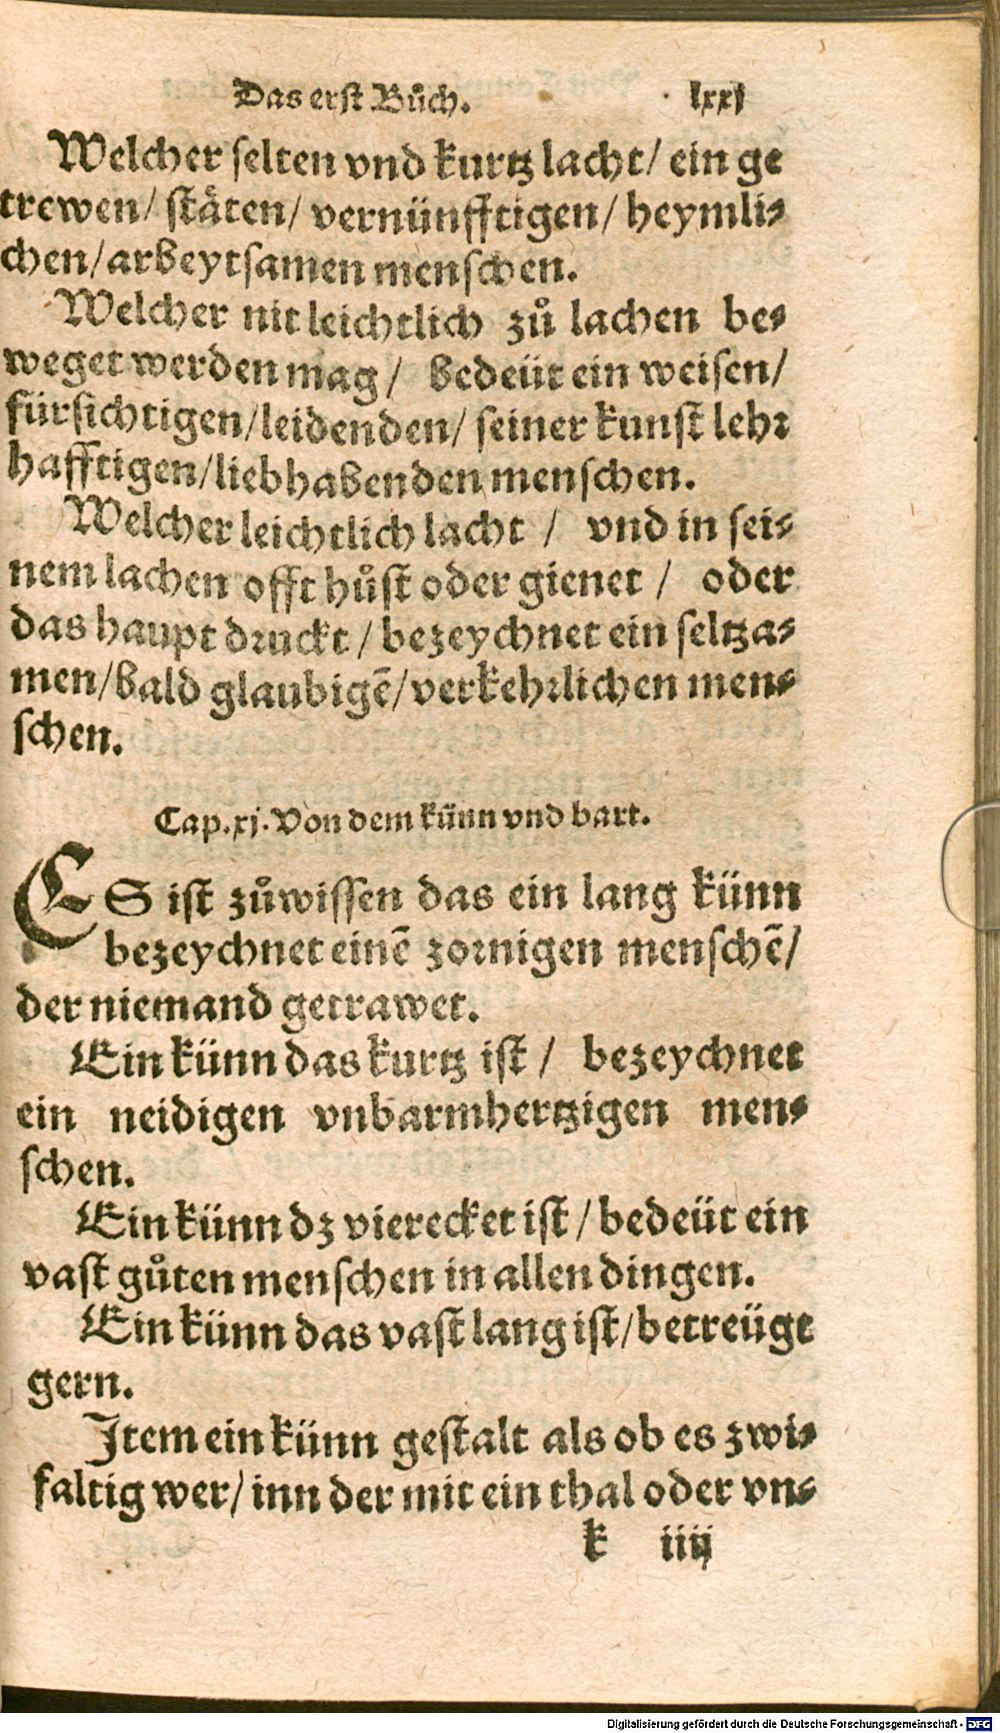 Das erst Bůch. lxxj
Welcher selten vnd kurtz lacht/ ein ge
trewen/ stäten/ vernünfftigen/ heymli⸗
chen/ arbeytsamen menschen.
Welcher nit leichtlich zů lachen be⸗
weget werden mag/ bedeüt ein weisen/
fürsichtigen/ leidenden/ seiner kunst lehr
hafftigen/ liebhabenden menschen.
Welcher leichtlich lacht / vnd in sei⸗
nem lachen offt hůst oder gienet / oder
das haupt druckt / bezeychnet ein seltza⸗
men/ bald glaubigẽ/ verkehrlichen men⸗
schen.
Cap. xj. Von dem künn vnd bart.
ES ist zůwissen das ein lang künn
bezeychnet einẽ zornigen menschẽ/
der niemand getrawet.
Ein künn das kurtz ist / bezeychnet
ein neidigen vnbarmhertzigen men⸗
schen.
Ein künn dz vierecket ist / bedeüt ein
vast gůten menschen in allen dingen.
Ein künn das vast lang ist/ betreügt
gern.
Item ein künn gestalt als ob es zwi⸗
faltig wer/ inn der mit ein thal oder vn⸗
k iiij
Digitalisierung gefördert durch die Deutsche Forschungsgemeinschaft - DFG